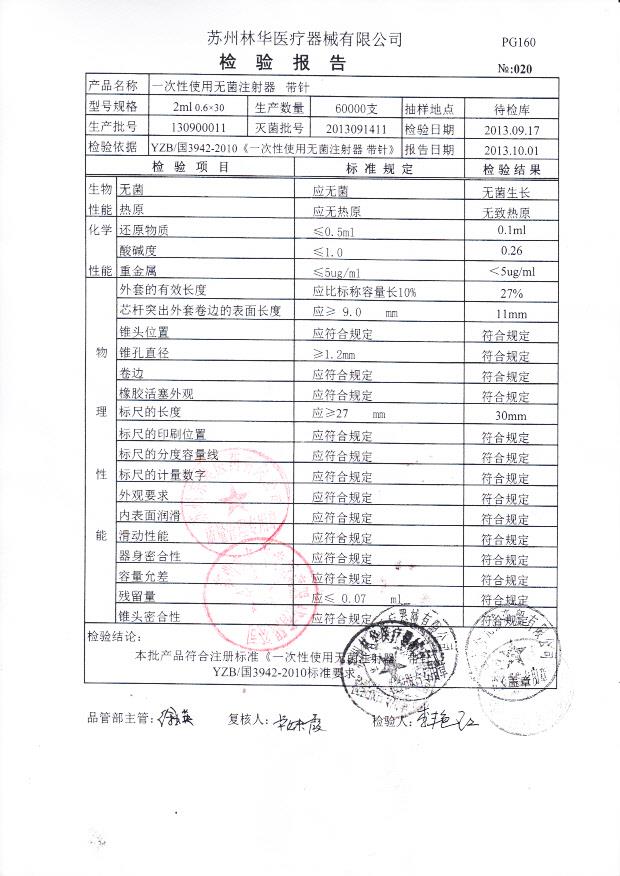 苏州林华医疗器械有限公司
PG160
检 验 报 告
№:020
产品名称 一次性使用无菌注射器 带针
型号规格 2ml 0.6×30 生产数量 60000支 抽样地点 待检库
生产批号 130900011 灭菌批号 2013091411 检验日期 2013.09.17
检验依据 YZB/国3942-2010《一次性使用无菌注射器 带针》 报告日期 2013.10.01
检 验 项 目 标 准 规 定 检 验 结 果
生物 无菌 应无菌 无菌生长
性能 热原 应无热原 无致热原
化学 还原物质 ≤0.5ml 0.1ml
酸碱度 ≤1.0 0.26
性能 重金属 ≤5ug/ml ＜5ug/ml
外套的有效长度 应比标称容量长10% 27%
芯杆突出外套卷边的表面长度 应≥ 9.0 mm 11mm
锥头位置 应符合规定 符合规定
物 锥孔直径 ≥1.2mm 符合规定
卷边 应符合规定 符合规定
橡胶活塞外观 应符合规定 符合规定
理 标尺的长度 应≥27 mm 30mm
标尺的印刷位置 应符合规定 符合规定
标尺的分度容量线 应符合规定 符合规定
性 标尺的计量数字 应符合规定 符合规定
外观要求 应符合规定 符合规定
内表面润滑 应符合规定 符合规定
能 滑动性能 应符合规定 符合规定
器身密合性 应符合规定 符合规定
容量允差 应符合规定 符合规定
残留量 应≤ 0.07 ml 符合规定
锥头密合性 应符合规定 符合规定
检验结论:
本批产品符合注册标准《一次性使用无菌注射器 带针》
YZB/国3942-2010标准要求
品管部主管: 复核人: 检验人: